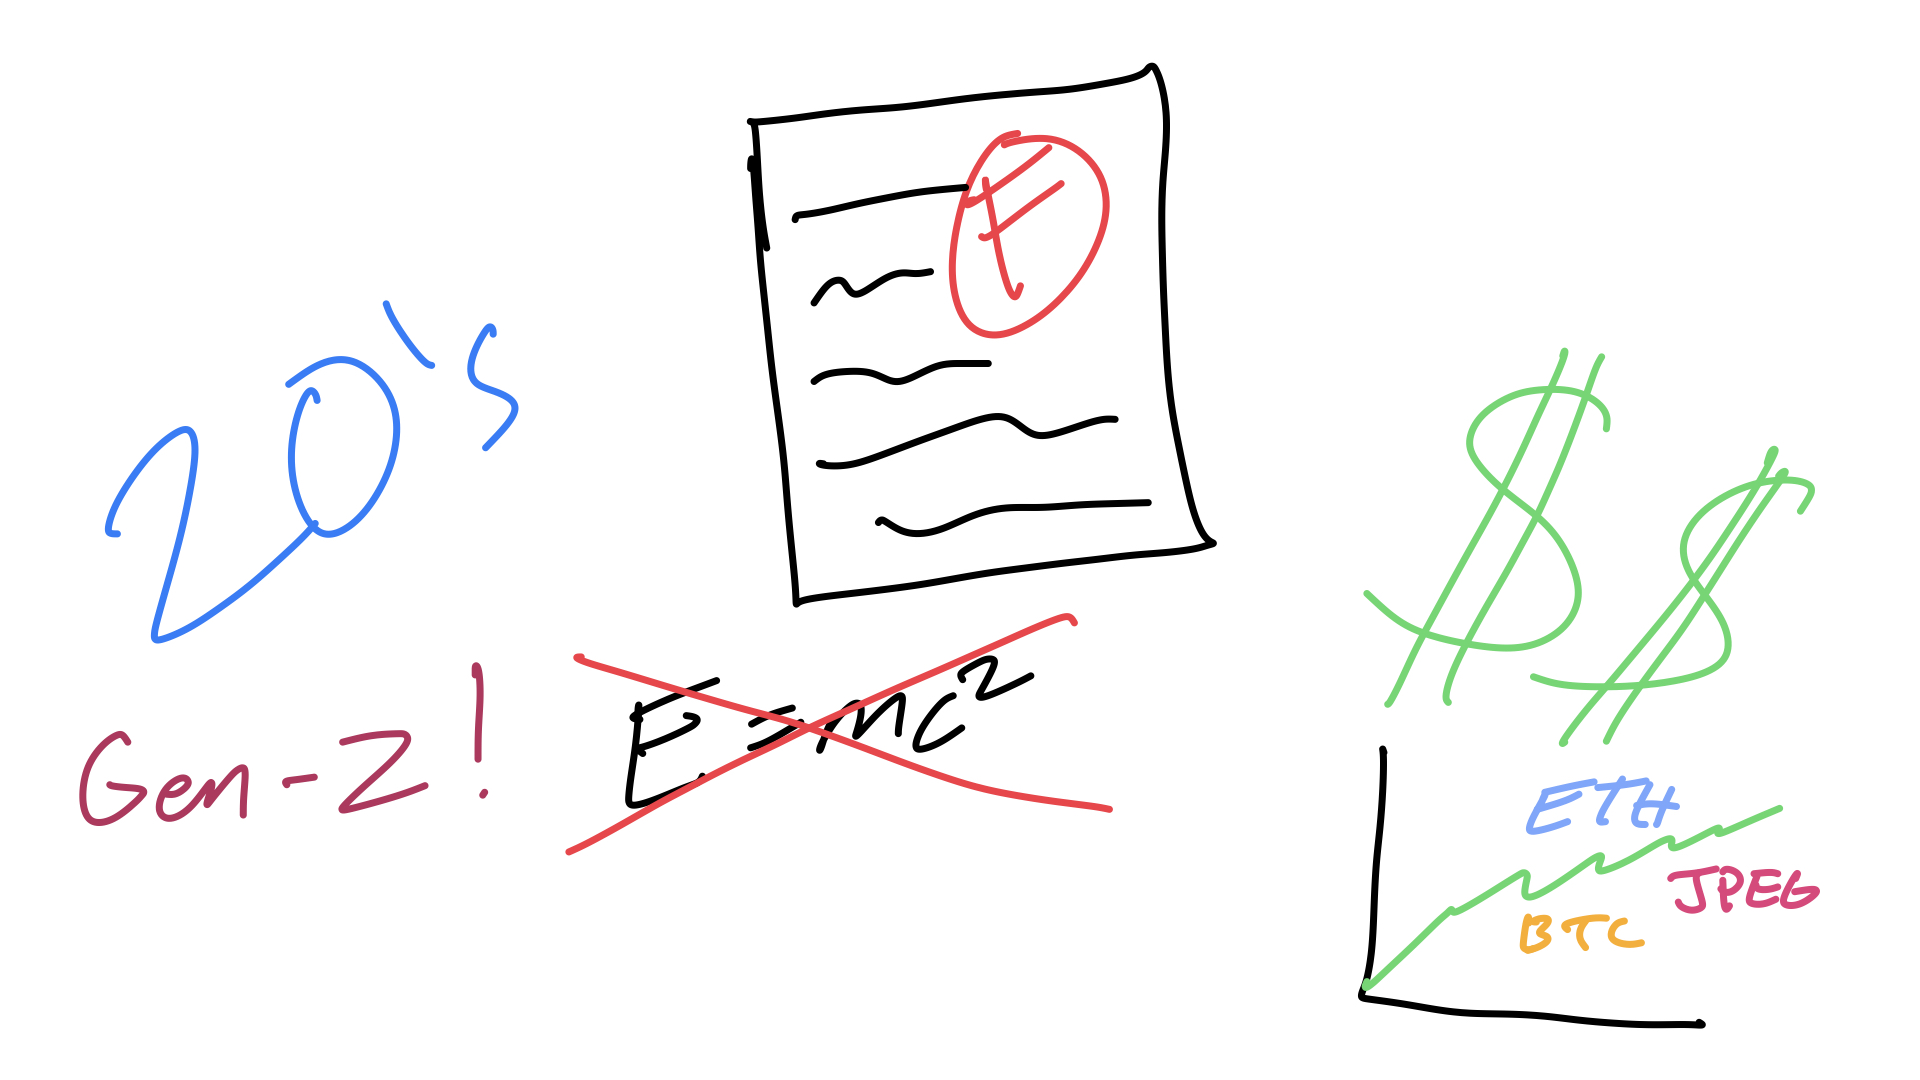 20's
Gen-Z!
F
E=mc²
$$
ETH
JPEG
BTC